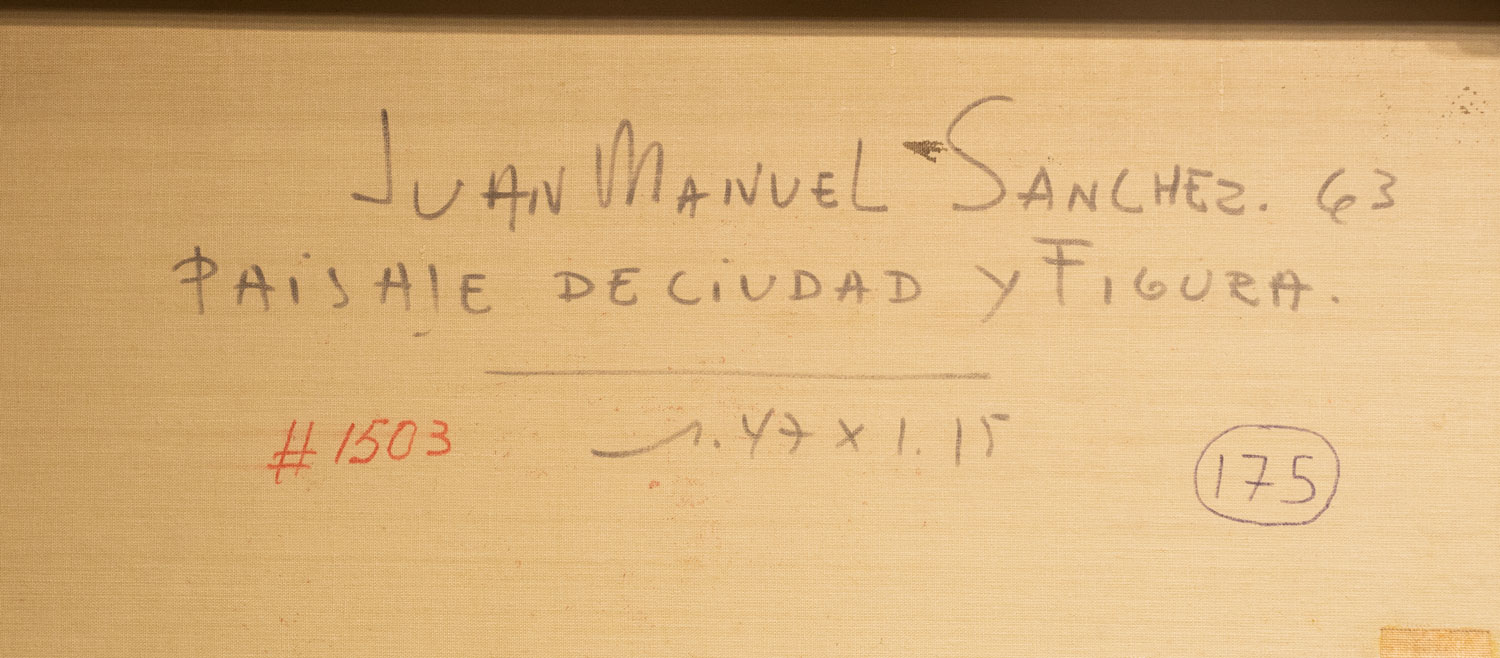 JUAN MANUEL SANCHEZ. 63
PAiSAJE DE CiUDAD Y FIGURA.
#1503 1.47 x 1.15
175